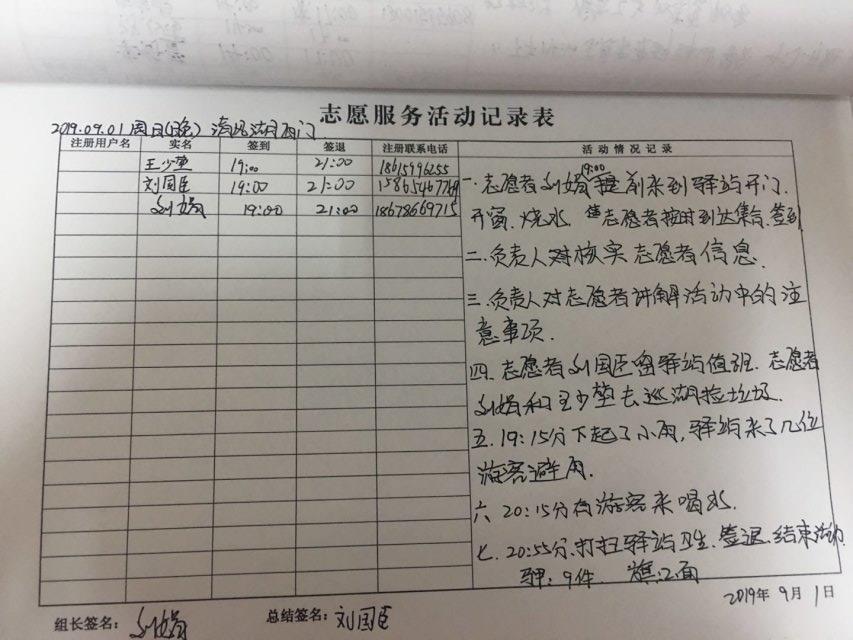 志愿服务活动记录表
2019.09.01周日(晚) 清风湖西门
注册用户名 实名 签到 签退 注册联系电话 活动情况记录
王少堂 19:00 21:00 18615996255
刘国臣 19:00 21:00 15865467769
刘娟 19:00 21:00 18678669715
19:00
一.志愿者刘娟提前来到驿站开门.
开窗.烧水. 志愿者按时到达集合.签到
二.负责人对核实志愿者信息.
三.负责人对志愿者讲解活动中的注
意事项.
四.志愿者刘国臣留驿站值班.志愿者
刘娟和王少堂去巡湖捡垃圾.
五.19:15分下起了小雨,驿站来了几位
游客避雨.
六 20:15分有游客来喝水.
七.20:55分.打扫驿站卫生.签退.结束活动.
9件. 旗:2面
2019年9月1日
组长签名: 刘娟 总结签名: 刘国臣